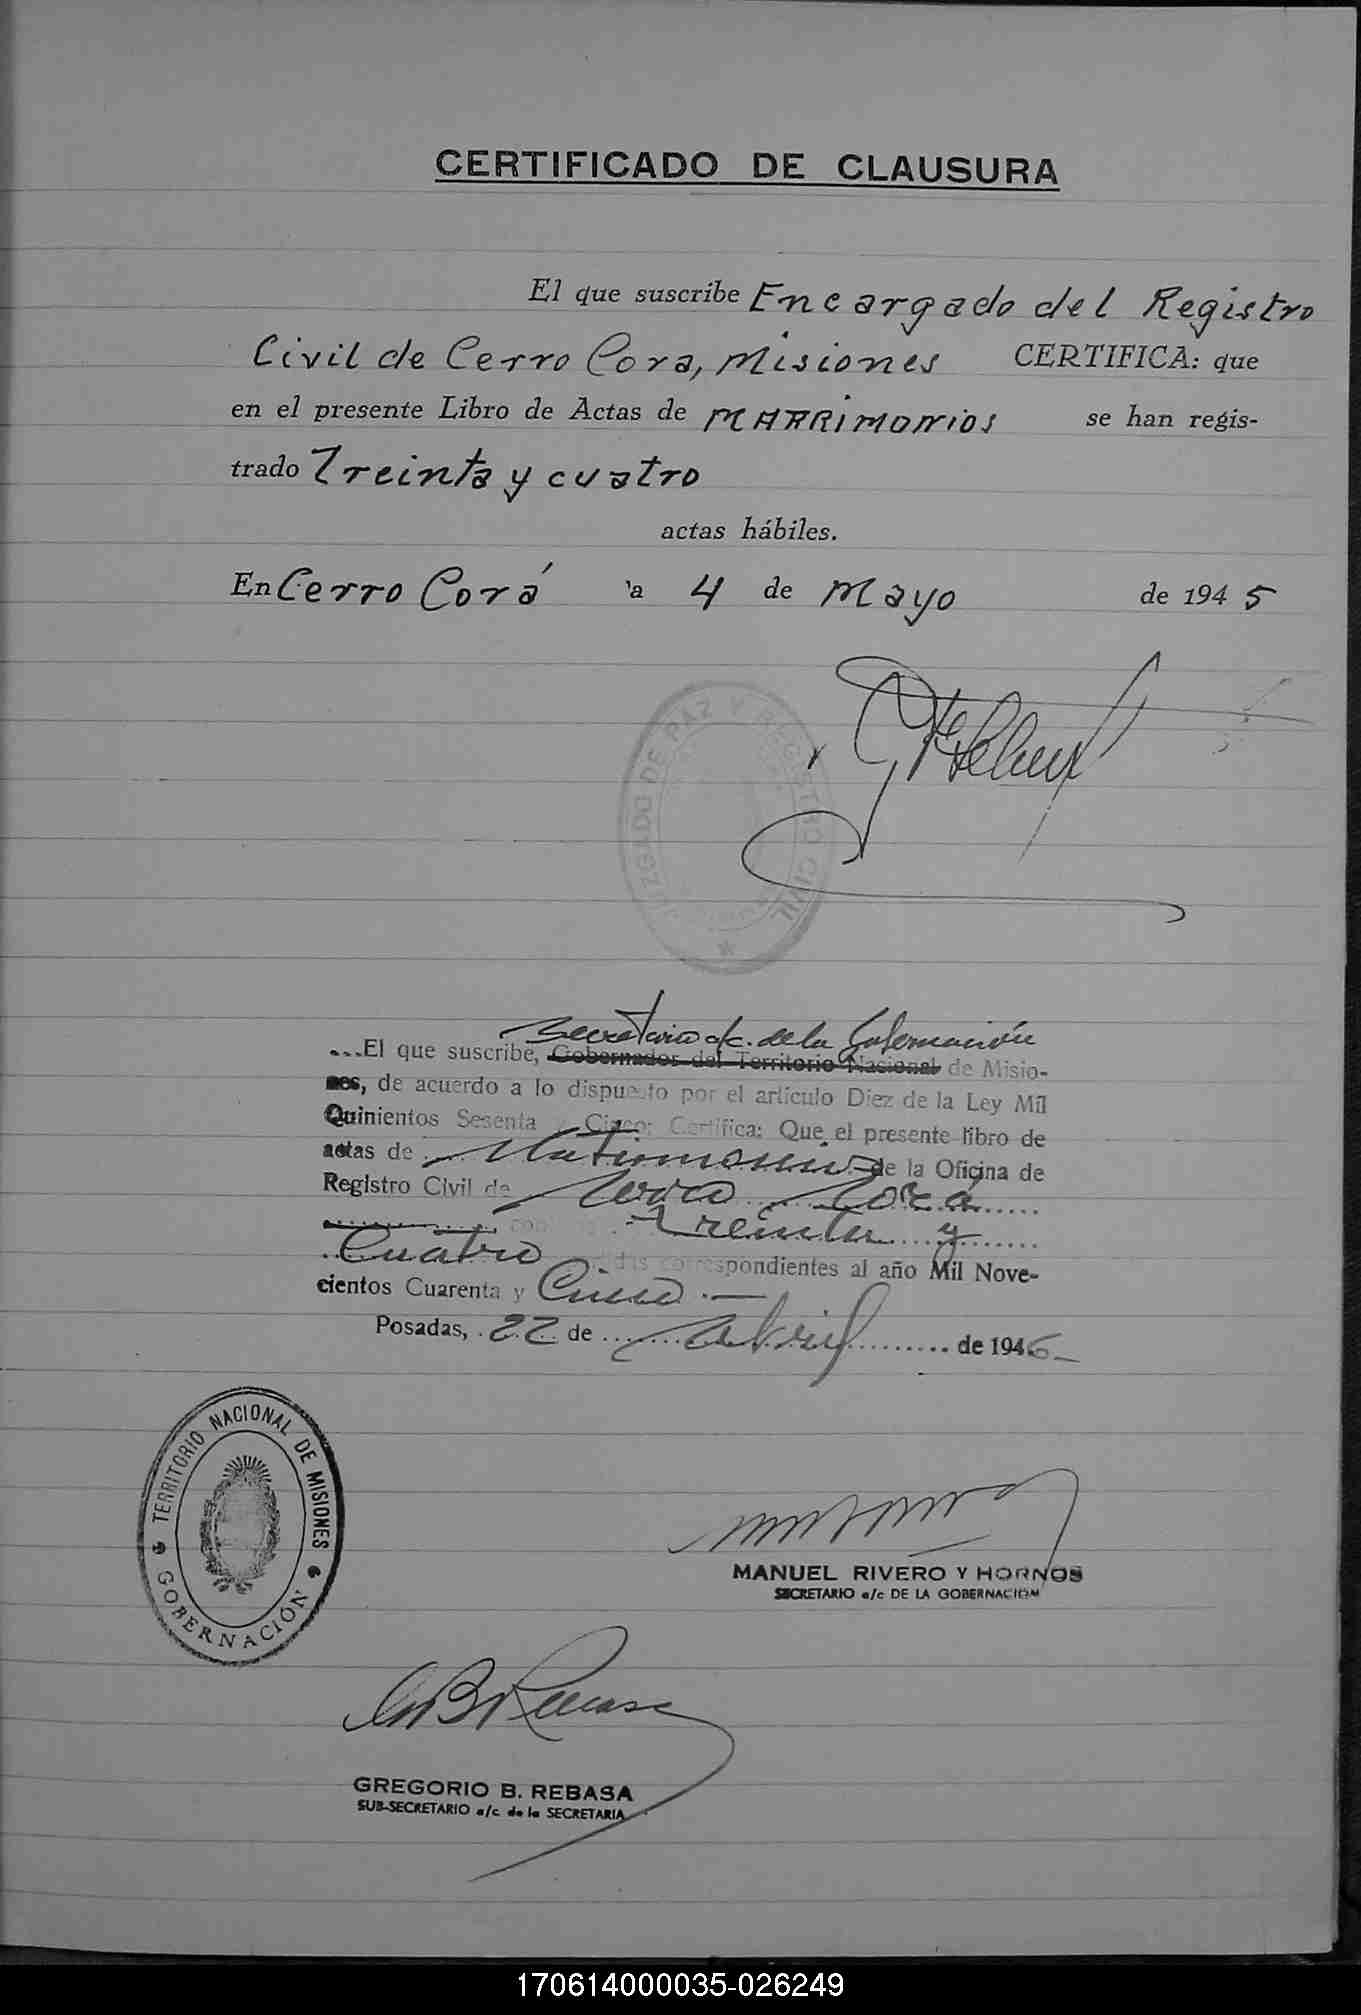 CERTIFICADO DE CLAUSURA
El que suscribe Encargado del Registro
Civil de Cerro Cora, Misiones CERTIFICA: que
en el presente Libro de Actas de MATRIMONIOS se han regis-
trado Treinta y cuatro
actas hábiles.
En Cerro Corá a 4 de Mayo de 1945
JUZGADO DE PAZ Y REGISTRO CIVIL
Secretario a/c. de la Gobernación
...El que suscribe, Gobernador del Territorio Nacional de Misio-
nes, de acuerdo a lo dispuesto por el artículo Diez de la Ley Mil
Quinientos Sesenta y Cinco: Certifica: Que el presente libro de
actas de Matrimonios de la Oficina de
Registro Civil de Cerro Corá
Treinta y
Cuatro correspondientes al año Mil Nove-
cientos Cuarenta y Cinco.—
Posadas, 22 de Abril de 1946
TERRITORIO NACIONAL DE MISIONES
GOBERNACIÓN
MANUEL RIVERO Y HORNOS
SECRETARIO a/c DE LA GOBERNACION
GREGORIO B. REBASA
SUB-SECRETARIO a/c de la SECRETARIA
170614000035-026249